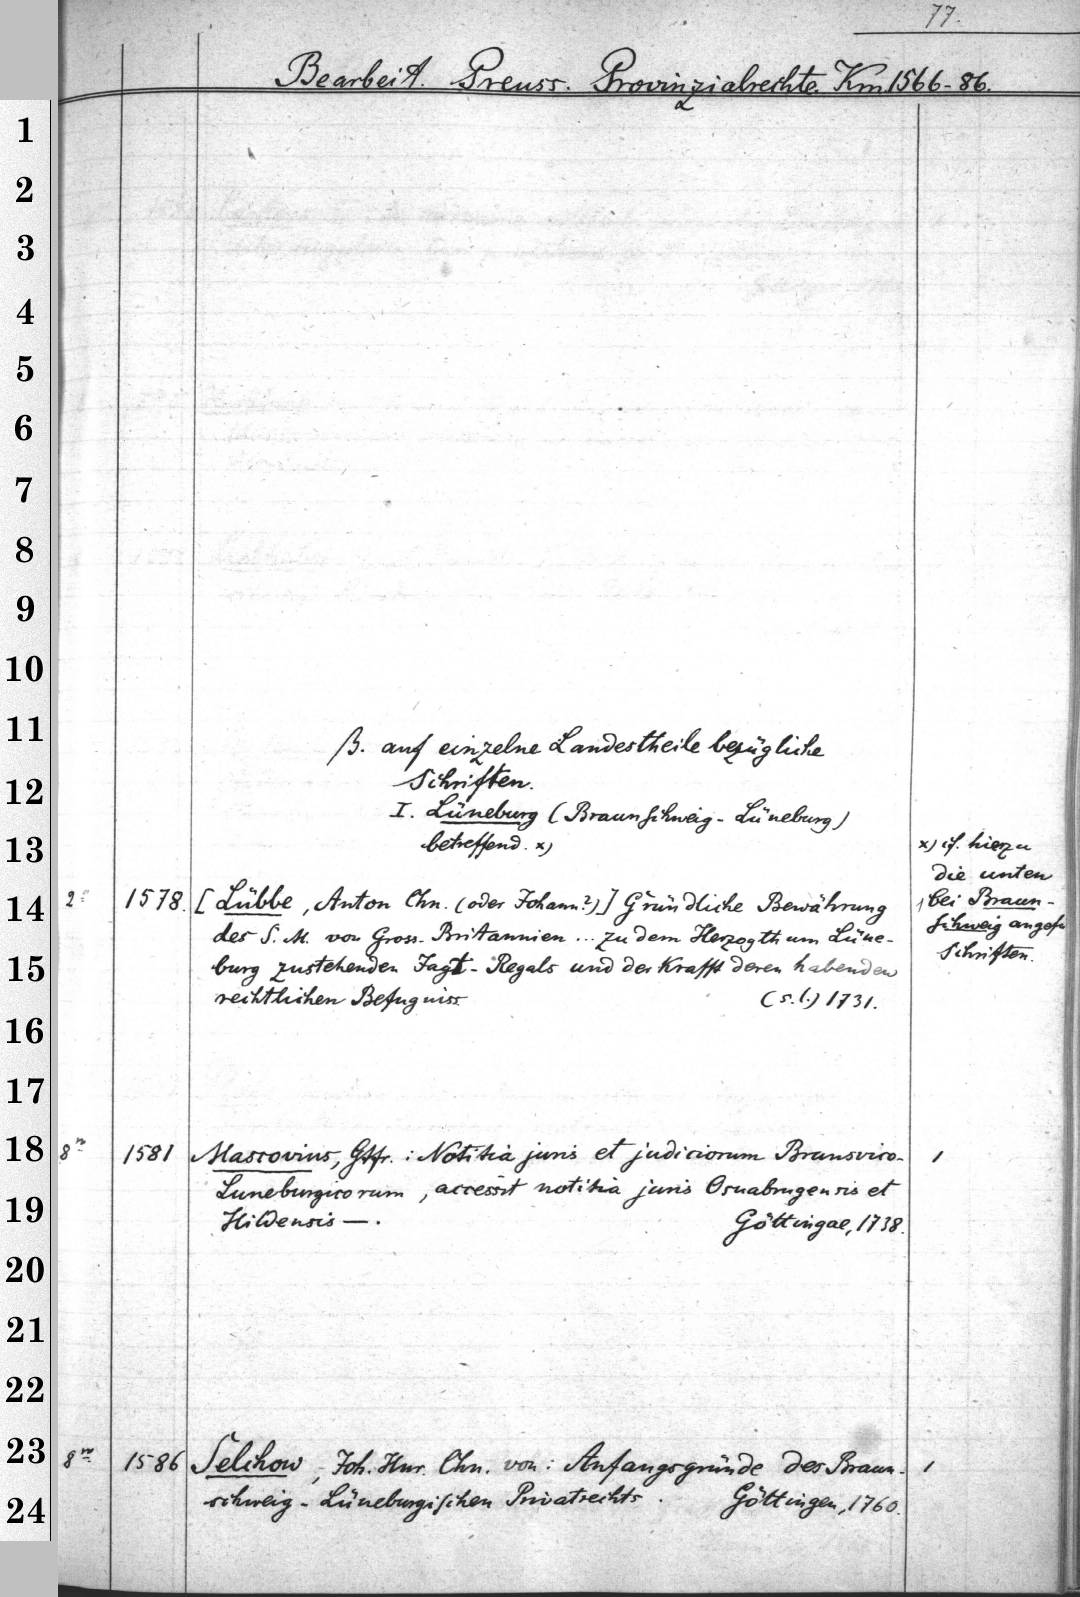 77.
Bearbeit. Preuss. Provinzialrechte. Km 1566-86.
1
2
3
4
5
6
7
8
9
10
11
β. auf einzelne Landestheile bezügliche
12
Schriften.
I. Lüneburg (Braunschweig-Lüneburg)
13
betreffend. x)
x) cf. hierzu
die unten
bei Braun-
schweig angef.
Schriften.
14
2° 1578. [Lübbe, Anton Chn. (oder Johann?)] Gründliche Bewährung
des S. M. von Gross-Britannien ... zu dem Herzogthum Lüne-
15
burg zustehenden Jagt-Regals und der Krafft deren habenden
rechtlichen Befugniss (s.l.) 1731.
16
17
18
8° 1581 Mascovius, Gtfr.: Notitia juris et judiciorum Brunsvico- 1
Luneburgicorum, accessit notitia juris Osnabrugensis et
19
Hildensis —. Göttingae, 1738.
20
21
22
23
8° 1586 Selchow, Joh. Hnr. Chn. von: Anfangsgründe des Braun- 1
24
schweig-Lüneburgischen Privatrechts. Göttingen, 1760.